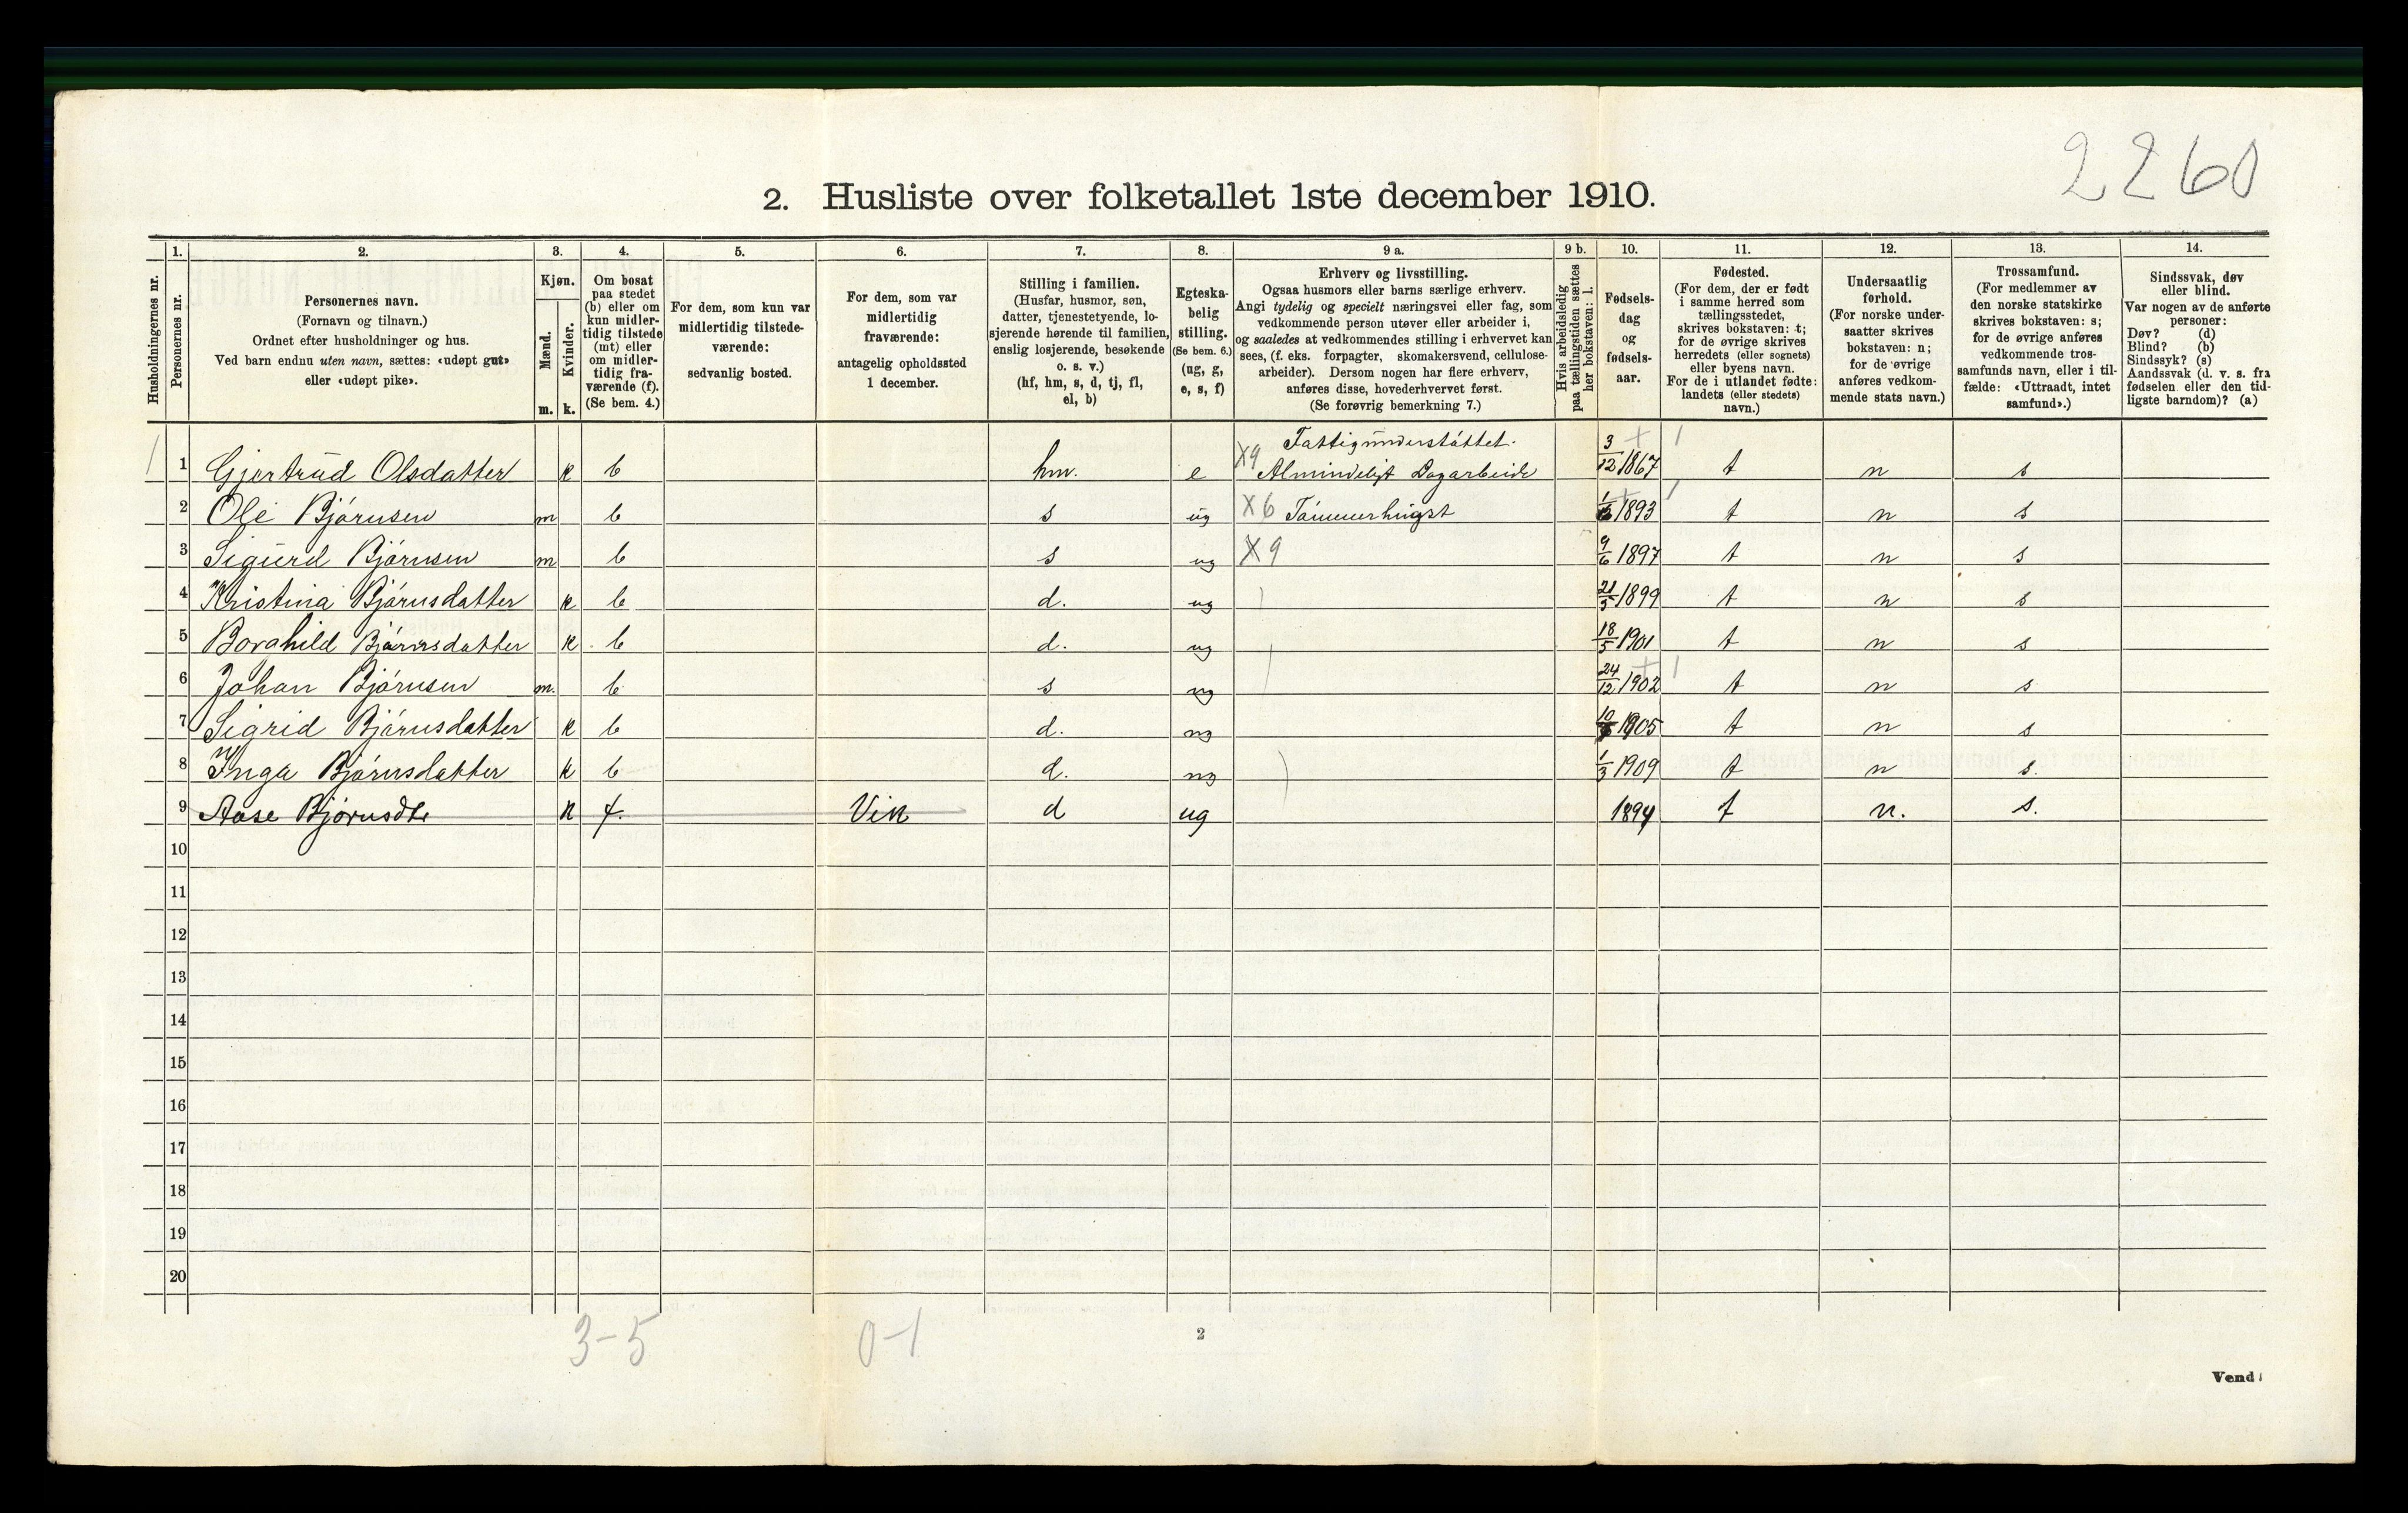 2260
2. Husliste over folketallet 1ste december 1910.
Husholdningernes nr.
1.
Personernes nr.
2.
Personernes navn.
(Fornavn og tilnavn.)
Ordnet efter husholdninger og hus.
Ved barn endnu uten navn, sættes: «udøpt gut»
eller «udøpt pike».
3.
Kjøn.
Mænd.
Kvinder.
m. k.
4.
Om bosat
paa stedet
(b) eller om
kun midler-
tidig tilstede
(mt) eller
om midler-
tidig fra-
værende (f).
(Se bem. 4.)
5.
For dem, som kun var
midlertidig tilstede-
værende:
sedvanlig bosted.
6.
For dem, som var
midlertidig
fraværende:
antagelig opholdssted
1 december.
7.
Stilling i familien.
(Husfar, husmor, søn,
datter, tjenestetyende, lo-
sjerende hørende til familien,
enslig losjerende, besøkende
o. s. v.)
(hf, hm, s, d, tj, fl,
el, b)
8.
Egteska-
belig
stilling.
(Se bem. 6.)
(ug, g,
e, s, f)
9 a.
Erhverv og livsstilling.
Ogsaa husmors eller barns særlige erhverv.
Angi tydelig og specielt næringsvei eller fag, som
vedkommende person utøver eller arbeider i,
og saaledes at vedkommendes stilling i erhvervet kan
sees, (f. eks. forpagter, skomakersvend, cellulose-
arbeider). Dersom nogen har flere erhverv,
anføres disse, hovederhvervet først.
(Se forøvrig bemerkning 7.)
9 b.
Hvis arbeidsledig
paa tællingstiden sættes
her bokstaven: l.
10.
Fødsels-
dag
og
fødsels-
aar.
11.
Fødested.
(For dem, der er født
i samme herred som
tællingsstedet,
skrives bokstaven: t;
for de øvrige skrives
herredets (eller sognets)
eller byens navn.
For de i utlandet fødte:
landets (eller stedets)
navn.)
12.
Undersaatlig
forhold.
(For norske under-
saatter skrives
bokstaven: n;
for de øvrige
anføres vedkom-
mende stats navn.)
13.
Trossamfund.
(For medlemmer av
den norske statskirke
skrives bokstaven: s;
for de øvrige anføres
vedkommende tros-
samfunds navn, eller i til-
fælde: «Uttraadt, intet
samfund».)
14.
Sindssvak, døv
eller blind.
Var nogen av de anførte
personer:
Døv? (d)
Blind? (b)
Sindssyk? (s)
Aandssvak (d. v. s. fra
fødselen eller den tid-
ligste barndom)? (a)
Fattigunderstøttet.
1 1 Gjertrud Olsdatter k b hm. e X9 Almindeligt Dagarbeide 3/12 1867 t n s
2 Ole Bjørnsen m b s ug X6 Tømmerhugst 1893 t n s
3 Sigurd Bjørnsen m b s ug X9 9/6 1897 t n s
4 Kristina Bjørnsdatter k b d. ug 21/5 1899 t n s
5 Borghild Bjørnsdatter k b d. ug 18/5 1901 t n s
6 Johan Bjørnsen m. b s ug 24/12 1902 t n s
7 Sigrid Bjørnsdatter k b d. ug 1905 t n s
8 Inga Bjørnsdatter k b d. ug 1/3 1909 t n s.
9 Aase Bjørnsdtr k f. Vik d ug 1894 t n. s.
10
11
12
13
14
15
16
17
18
19
20
3-5 0-1
2
Vend!